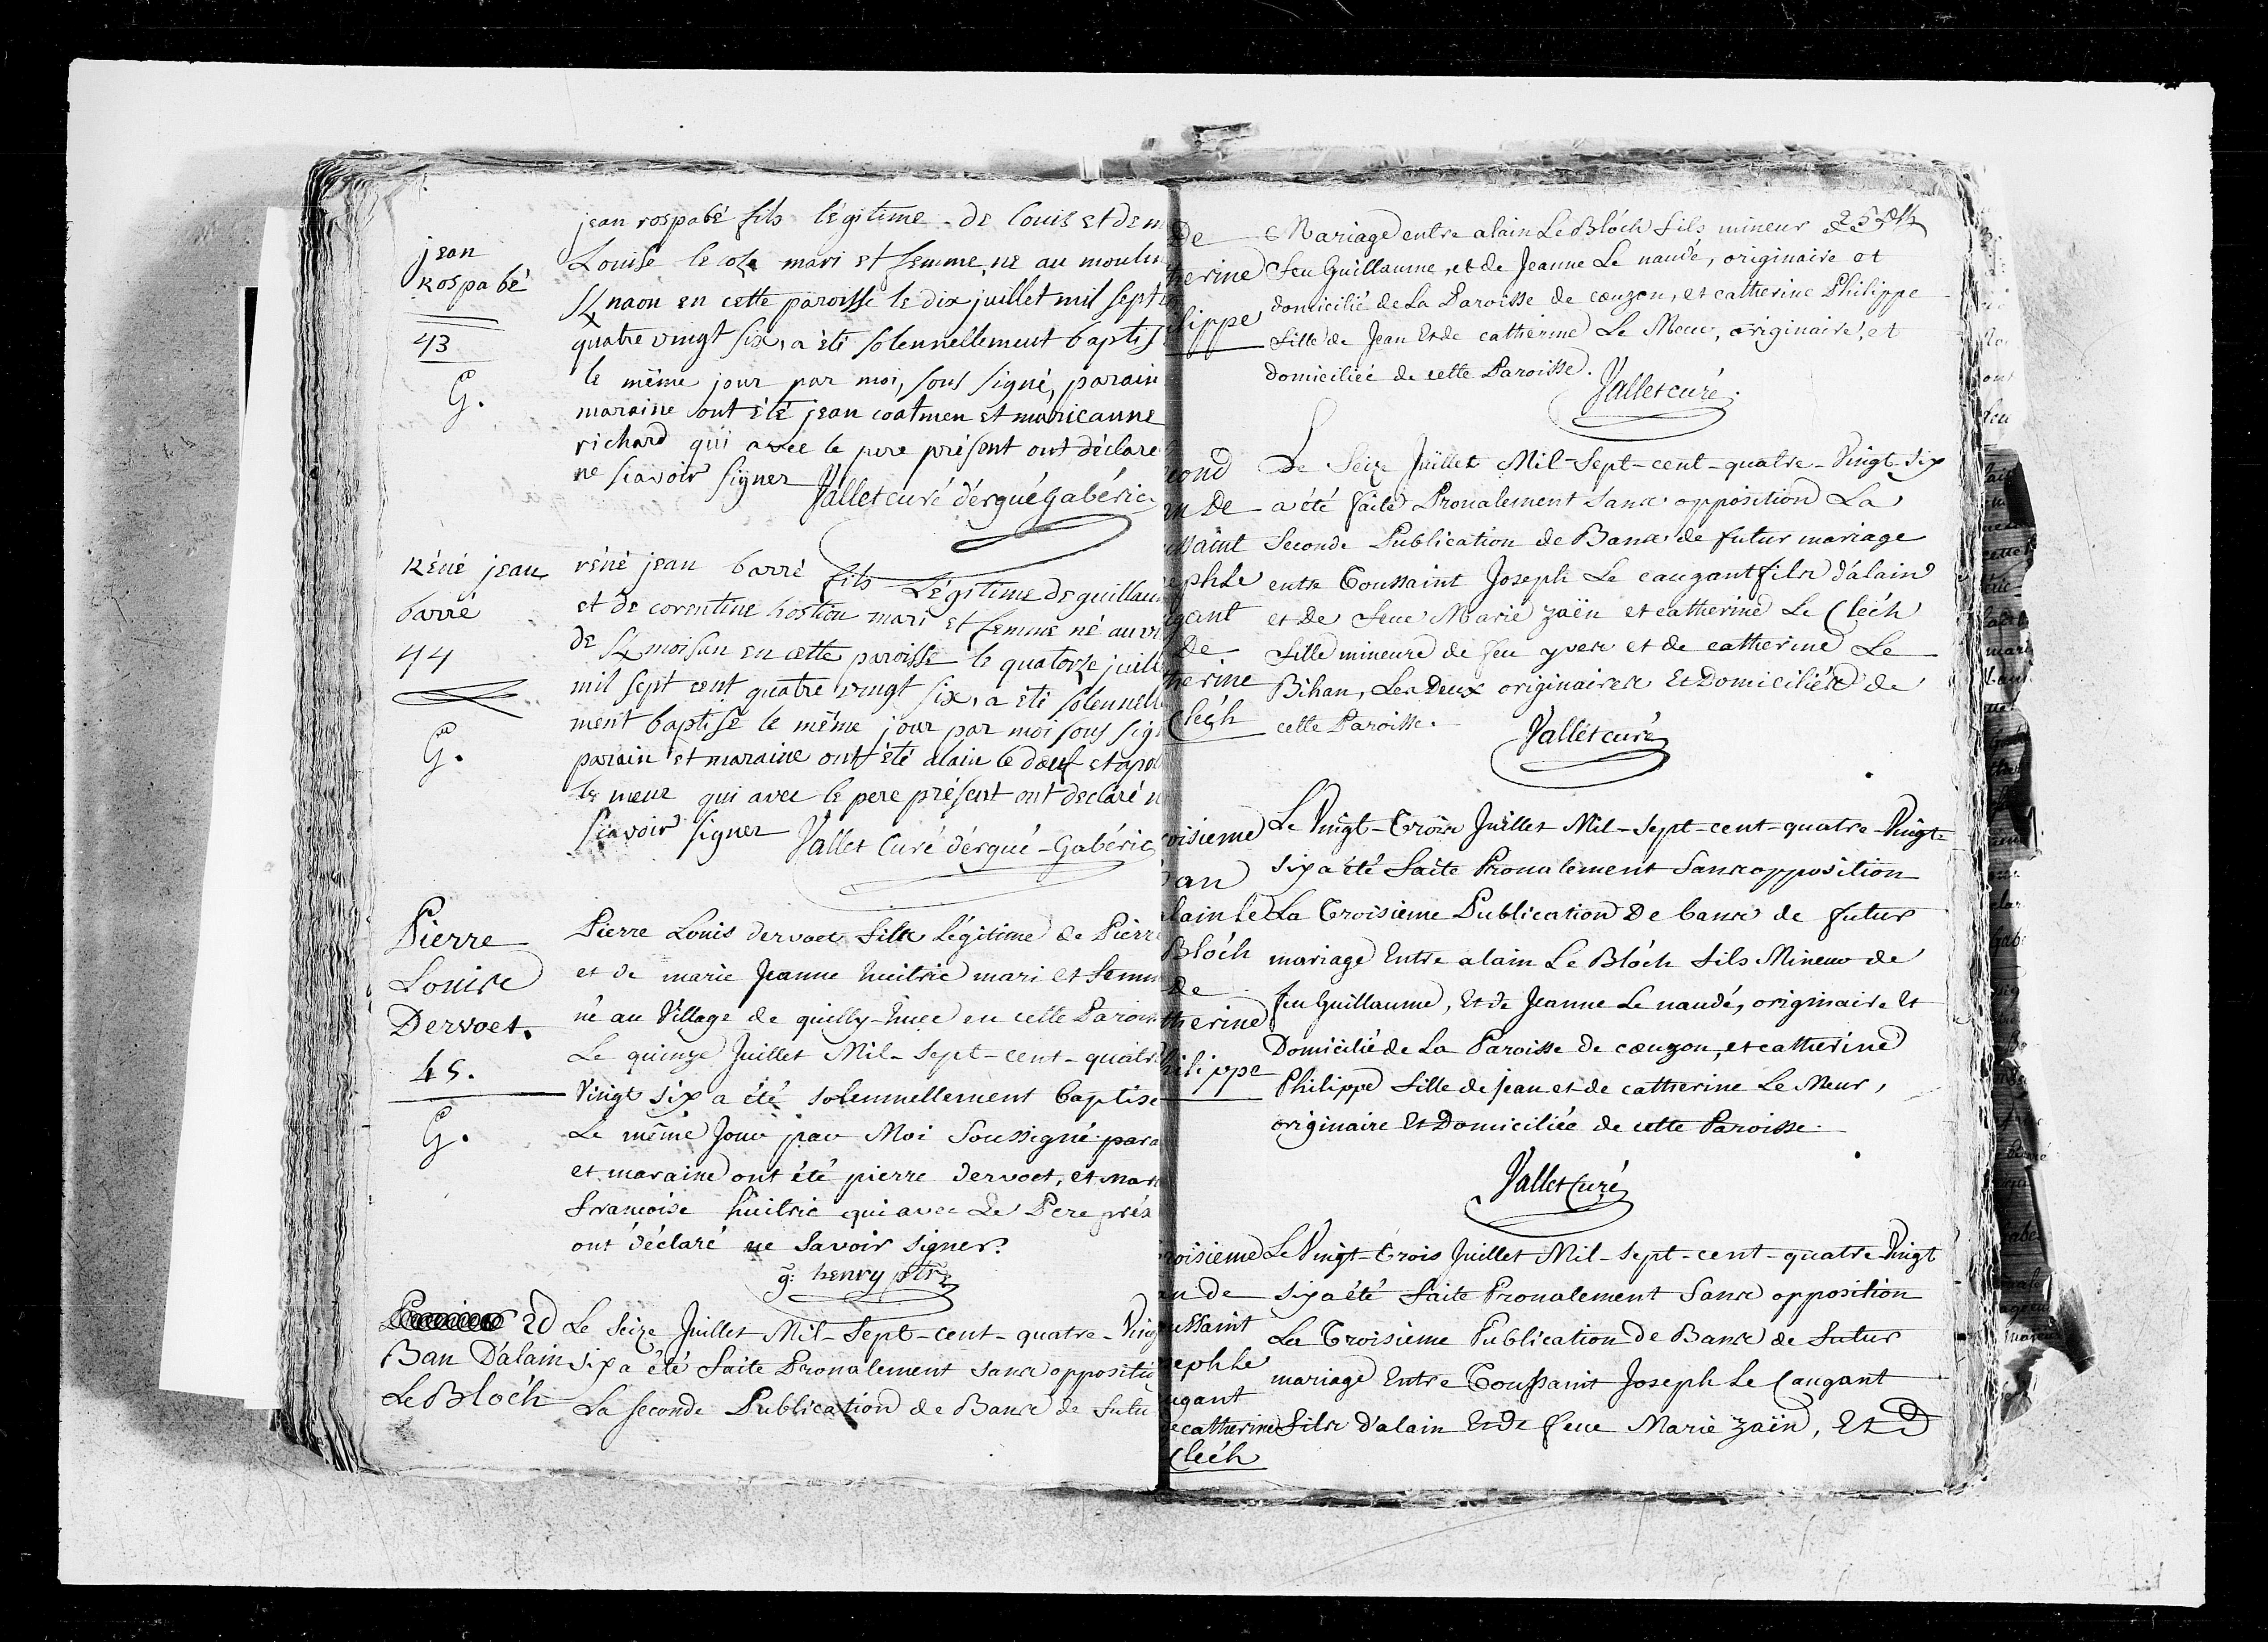 jean
Rospabé
43
G.
jean rospabé fils légitime de louis et de m
Louise le mari et femme, né au moulin
naon en cette paroisse le dix juillet mil sept
quatre vingt six, a été solennellement baptis
le même jour par moi, sous signé, parain
maraine ont été jean coatmen et marieanne
richard qui avec le pere présent ont déclaré
ne scavoir signer Vallet curé d'ergué gabéric
Réné jean
barré
44
G.
réné jean barré fils Légitime de guillau
et de corentine hostiou mari et femme né au vi
de en cette paroisse le quatorze juill
mil sept cent quatre vingt six, a été solennell
ment baptisé le même jour par moi sous sig
parain et maraine ont été alain le dœuf et
le meur qui avec le pere présent ont declaré n
scavoir signer Vallet Curé d'ergué-Gabéric
Pierre
Louis
Dervoet.
45.
G.
Pierre Louis dervoet fils légitime de Pierre
et de marie Jeanne huitric mari et femm
né au Village de quilly-huec en cette Parois
Le quinze Juillet Mil-sept-cent-quatre
Vingt six a été solennellement baptisé
Le même Jour par Moi Soussigné para
et maraine ont été pierre dervoet, et mar
francoise huitric qui avec Le Pere prés
ont déclaré ne savoir signer.
g: henry ptre
2d
Ban D'alain
Le Bloc'h
Le seize Juillet Mil-sept-cent-quatre-Ving
six a été faite Pronalement sans oppositio
La seconde Publication de Bans de futu
De
therine
lippe
Mariage entre alain Le Bloc'h fils mineur de
feu Guillaume, et de Jeanne Le naudé, originaire et
domicilié de La Paroisse de cœuzon, et catherine Philippe
fille de Jean Et de catherine Le Meur, originaire, et
domiciliée de cette Paroisse.
Vallet curé.
cond
an De
ussaint
ephLe
gant
de
therine
Clec'h
Le Seize Juillet Mil-Sept-cent-quatre-Vingt-six
a été faite Pronalement sans opposition La
Seconde Publication de Bans de futur mariage
entre Toussaint Joseph Le caugant fils d'alain
et De feue Marie zaën et catherine Le Clec'h
fille mineure de feu yves et de catherine Le
Bihan, Les Deux originaires Et Domiciliés de
cette Paroisse.
Vallet curé
oisieme
an
lain le
Bloc'h
De
therine
hilippe
Le Vingt-Trois Juillet Mil-sept-cent-quatre-Vingt-
six a été faite Pronalement Sans opposition
La Troisieme Publication De bans de futur
mariage Entre alain Le Bloc'h fils Mineur de
feu Guillaume, Et de Jeanne Le naudé, originaire Et
Domicilié de La Paroisse de cœuzon, et catherine
Philippe fille de jean et de catherine Le Meur,
originaire Et Domiciliée de cette Paroisse.
Vallet Curé
roisieme
an de
ussaint
seph Le
ugant
e catherine
Clec'h
Le Vingt-Trois Juillet Mil-sept-cent-quatre Vingt
six a été faite Pronalement Sans opposition
La Troisieme Publication de Bans de futur
mariage Entre Toussaint Joseph Le Caugant
fils d'alain Et De feue Marie zaën, Et D